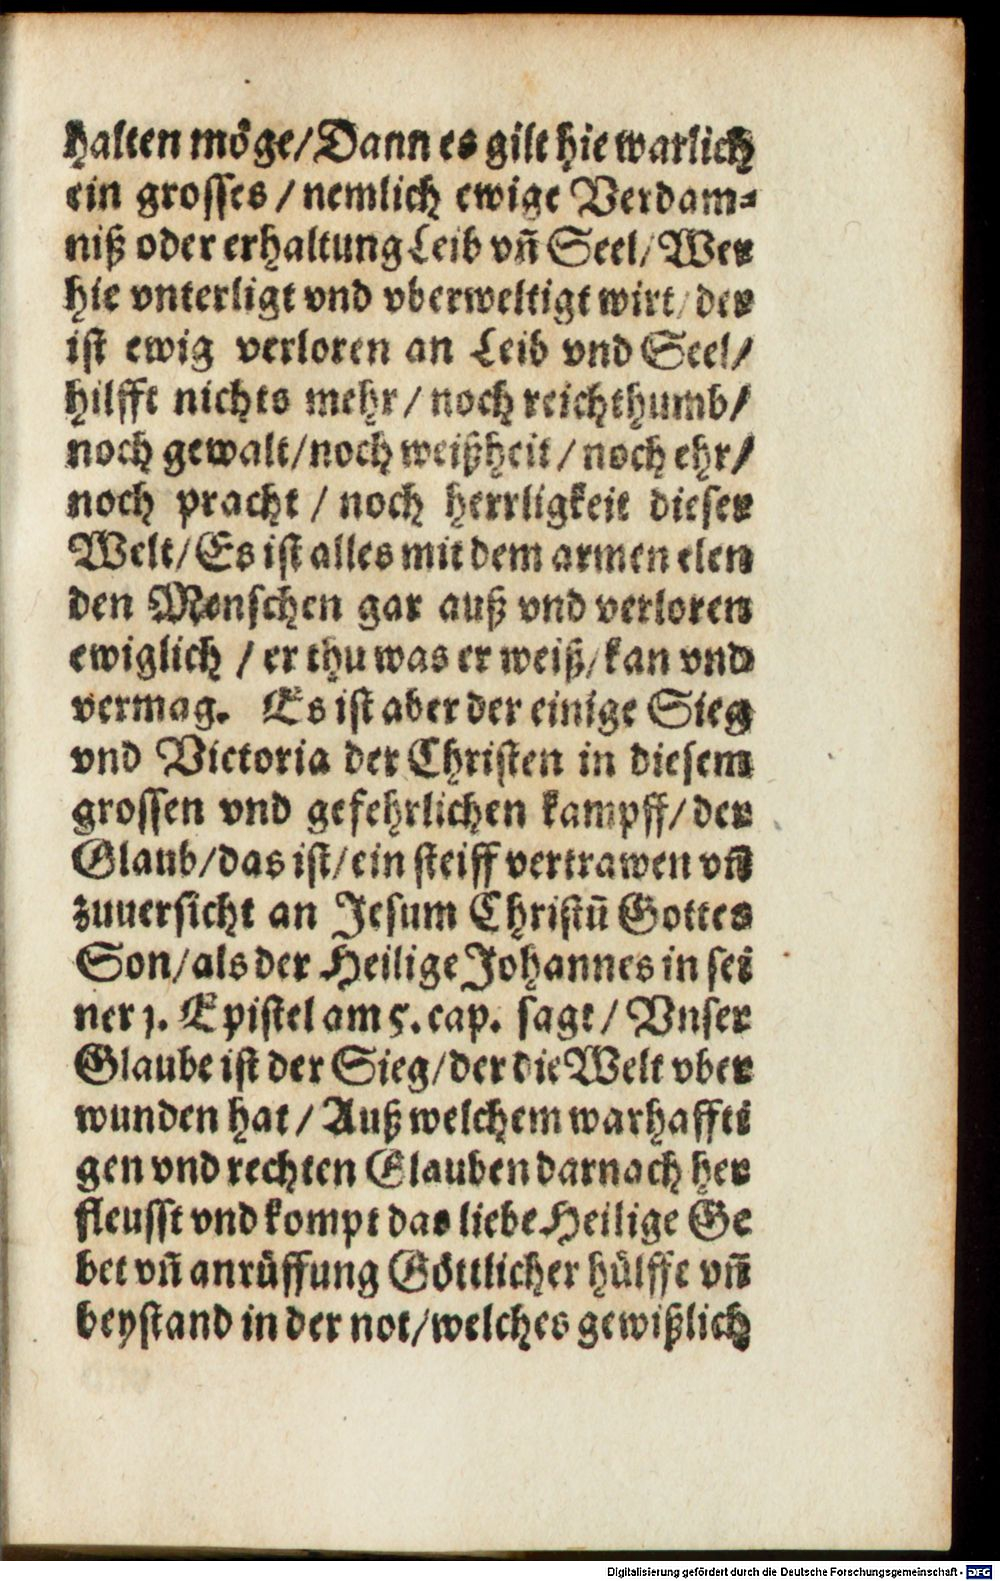 halten möge/Dann es gilt hie warlich
ein grosses / nemlich ewige Verdam⸗
niß oder erhaltung Leib vñ Seel/Wer
hie vnterligt vnd vberweltigt wirt/der
ist ewig verloren an Leib vnd Seel/
hilfft nichts mehr / noch reichthumb/
noch gewalt/noch weißheit / noch ehr/
noch pracht / noch herrligkeit dieser
Welt/Es ist alles mit dem armen elen
den Menschen gar auß vnd verloren
ewiglich / er thu was er weiß/kan vnd
vermag. Es ist aber der einige Sieg
vnd Victoria der Christen in diesem
grossen vnd gefehrlichen kampff/der
Glaub/das ist/ein steiff vertrawen vñ
zuuersicht an Jesum Christũ Gottes
Son/als der Heilige Johannes in sei
ner 1. Epistel am 5. cap. sagt / Vnser
Glaube ist der Sieg/der die Welt vber
wunden hat / Auß welchem warhaffti
gen vnd rechten Glauben darnach her
fleusst vnd kompt das liebe Heilige Ge
bet vñ anrüffung Göttlicher hülffe vñ
beystand in der not/welches gewißlich
Digitalisierung gefördert durch die Deutsche Forschungsgemeinschaft - DFG